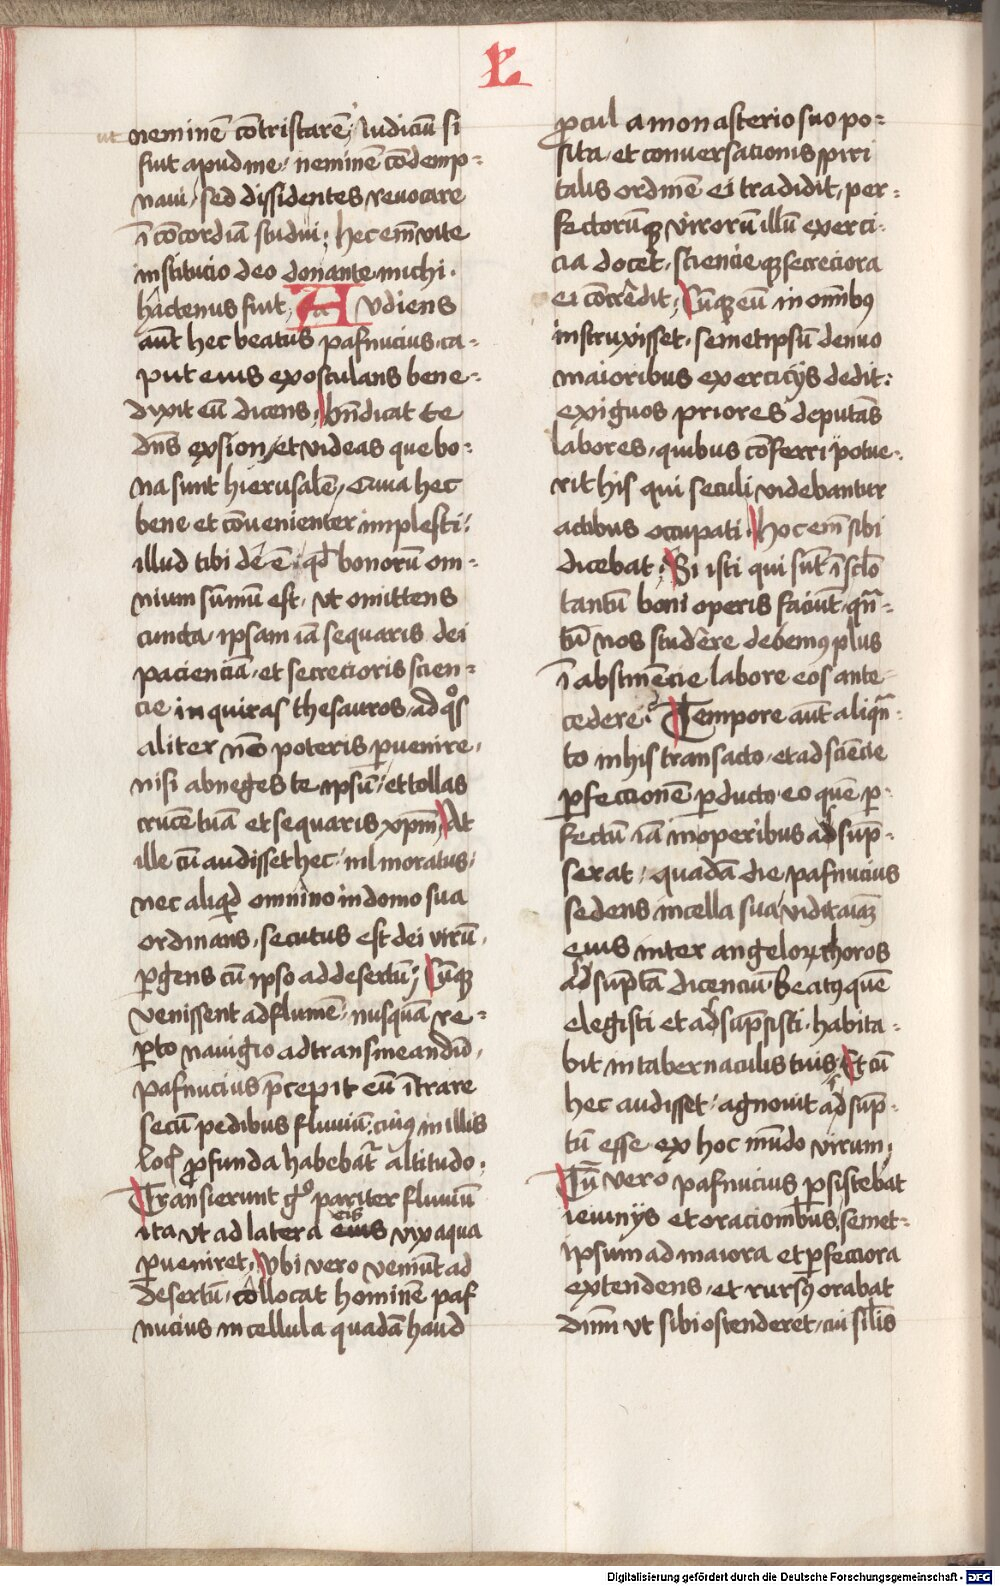 L
ut neminē cōtristarē, Iudiciū si
fuit apud me, neminē cōdemp-
navi, sed dissidentes revocare
ī cōcordiā studui; hec em̄ vite
institucio deo donante michi
hactenus fuit, Audiens
aūt hec beatus pafnucius ca-
put eius exosculans bene-
dixit eū dicens, bn̄dicat te
dn̄s ex sion, et videas que bo-
na sunt hierusalē, Quia hec
bene et cōvenienter implesti,
illud tibi deē qd̄ bonorū om-
nium sūmū est, ut omittens
cuncta, ipsam iā sequaris dei
pacienciā, et secrecioris scien-
cie inquiras thesauros, ad qͦs
aliter nō poteris pvenire,
nisi abneges te ipsū, et tollas
crucē tuā et sequaris xpm̄, At
ille cū audisset hec, nil moratus,
nec aliqͥd omnino in domo sua
ordinans, secutus est dei virū,
pgens cū ipso ad desertū; Cūqꝫ
venissent ad flumē, nusquā re-
pto navigio ad transmeandū,
pafnucius p̄cepit eū ītrare
secū pedibus fluviū, cuiꝰ in illis
locꝭ ꝓfunda habebat̃ altitudo,
Transierunt gͦ pariter fluviū
ita ut ad latera eis eius vix aqua
pveniret, Vbi vero veniūt ad
desertū, collocat hominē paf
nucius in cellula quadā haud
ꝓcul a monasterio suo po-
sita, et conversacionis spiri
talis ordinē ei tradidit, per-
fectorūqꝫ virorū illū exerci-
cia docet, sciencieqꝫ secreciora
ei cōcredit, Cūqꝫ eū in omībꝰ
instruxisset, semetipsū denuo
maioribus exercicijs dedit:
exiguos priores deputās
labores, quibus cōferri potue-
rit his qui seculi videbantur
actibus occupati, hoc em̄ sibi
dicebat, Si isti qui sūt ī sclo
tantū boni operis faciūt, qn̄-
tū nos studere debemꝰ plus
ī abstinēcie labore eos ante-
cedere? Tempore aūt aliqn̄-
to in his transacto, et ad sciēcie
pfeccionē pducto eo quē p-
fectū iā in operibus adsūp-
serat, quadā die pafnucius
sedens in cella sua, vidit aīaꝫ
eius inter angeloꝝ choros
adsūptā dicenciū, Beatꝰ quē
elegisti et adsūpsisti, habita-
bit in tabernaculis tuis, Et cū
hec audisset, agnovit adsūp-
tū esse ex hoc mūdo virum,
Tū vero pafnucius psistebat
ieiunijs et oracionibus, semet-
ipsum ad maiora et pfecciora
extendens, et rursꝰ orabat
dnm̄ ut sibi ostenderet, cui silīs
Digitalisierung gefördert durch die Deutsche Forschungsgemeinschaft - DFG